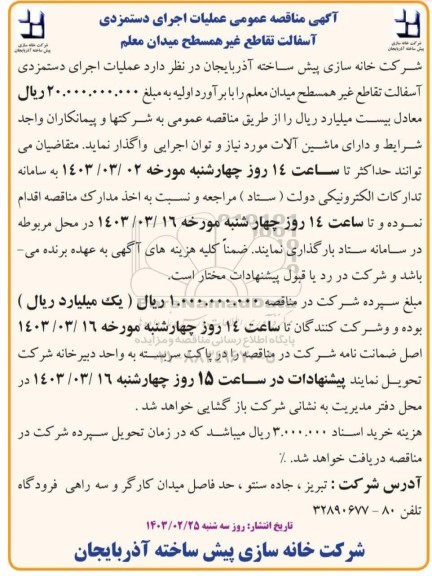 آگهی مناقصه عمومی عملیات اجرای دستمزدی
آسفالت تقاطع غیرهمسطح میدان معلم
شرکت خانه سازی
پیش ساخته آذربایجان
شرکت خانه سازی
پیش ساخته آذربایجان
شرکت خانه سازی پیش ساخته آذربایجان در نظر دارد عملیات اجرای دستمزدی
آسفالت تقاطع غیر همسطح میدان معلم را با برآورد اولیه به مبلغ ۲۰.۰۰۰.۰۰۰.۰۰۰ ریال
معادل بیست میلیارد ریال را از طریق مناقصه عمومی به شرکتها و پیمانکاران واجد
شرایط و دارای ماشین آلات مورد نیاز و توان اجرایی واگذار نماید. متقاضیان می
توانند حداکثر تا ساعت ۱۴ روز چهارشنبه مورخه ۰۲ /۰۳ /۱۴۰۳ به سامانه
تدارکات الکترونیکی دولت ( ستاد ) مراجعه و نسبت به اخذ مدارک مناقصه اقدام
نموده و تا ساعت ۱۴ روز چهار شنبه مورخه ۱۶ /۰۳ /۱۴۰۳ در محل مربوطه
در سامانه ستاد بارگذاری نمایند. ضمناً کلیه هزینه های آگهی به عهده برنده می-
باشد و شرکت در رد یا قبول پیشنهادات مختار است.
مبلغ سپرده شرکت در مناقصه ۱.۰۰۰.۰۰۰.۰۰۰ ریال ( یک میلیارد ریال )
بوده و وشرکت کنندگان تا ساعت ۱۴ روز چهارشنبه مورخه ۱۶ /۰۳ /۱۴۰۳
اصل ضمانت نامه شرکت در مناقصه را در پاکت سربسته به واحد دبیرخانه شرکت
تحویل نمایند پیشنهادات در ساعت ۱۵ روز چهارشنبه ۱۶ /۰۳ /۱۴۰۳ در
محل دفتر مدیریت به نشانی شرکت باز گشایی خواهد شد .
هزینه خرید اسناد ۳.۰۰۰.۰۰۰ ریال میباشد که در زمان تحویل سپرده شرکت در
مناقصه دریافت خواهد شد. ٪
آدرس شرکت : تبریز ، جاده سنتو ، حد فاصل میدان کارگر و سه راهی فرودگاه
تلفن ۸۰ - ۳۲۸۹۰۶۷۷
تاریخ انتشار: روز سه شنبه ۱۴۰۳/۰۲/۲۵
شرکت خانه سازی پیش ساخته آذربایجان